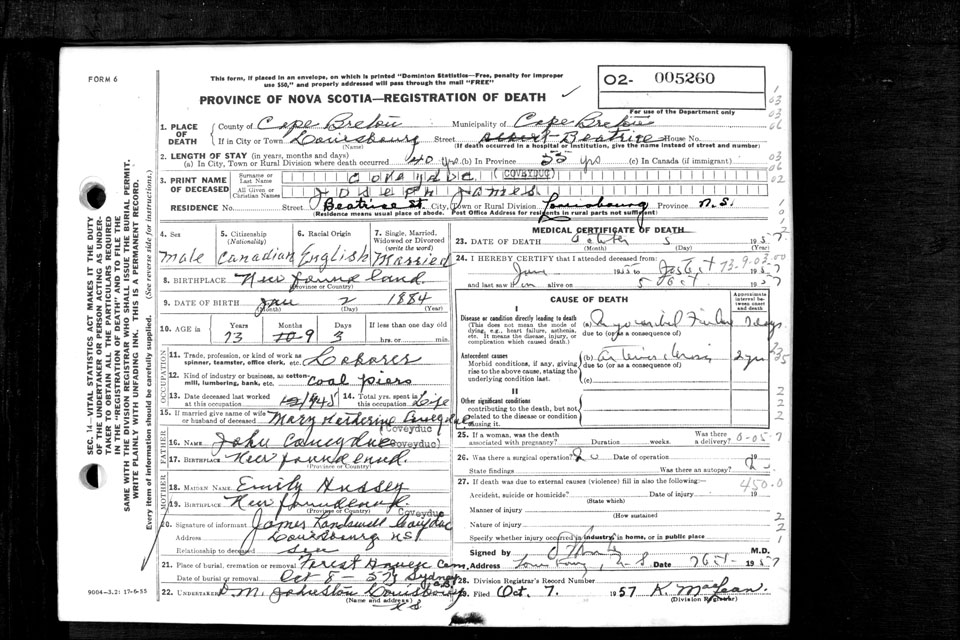 FORM 6
This form, if placed in an envelope, on which is printed "Dominion Statistics—Free, penalty for improper
use $50," and properly addressed will pass through the mail "FREE"
O2- 005260
PROVINCE OF NOVA SCOTIA—REGISTRATION OF DEATH
For use of the Department only
1. PLACE OF DEATH
County of Cape Breton Municipality of Cape Breton
If in City or Town Louisbourg Street Beatrice House No.
(Name) (If death occurred in a hospital or institution, give the name instead of street and number)
2. LENGTH OF STAY (in years, months and days)
(a) In City, Town or Rural Division where death occurred 40 yrs (b) In Province 55 yrs (c) In Canada (if immigrant)
3. PRINT NAME OF DECEASED
Surname or Last Name (COVEYDUC)
All Given or Christian Names JOSEPH JAMES
RESIDENCE No. Street Beatrice St. City, Town or Rural Division Louisbourg Province N.S.
(Residence means usual place of abode. Post Office Address for residents in rural parts not sufficient)
4. Sex Male
5. Citizenship (Nationality) Canadian
6. Racial Origin English
7. Single, Married, Widowed or Divorced (write the word) Married
8. BIRTHPLACE Newfoundland
(Province or Country)
9. DATE OF BIRTH Jan 2 1884
(Month) (Day) (Year)
10. AGE in Years 73 Months 9 Days 3 If less than one day old
hrs. or min.
OCCUPATION
11. Trade, profession, or kind of work as spinner, teamster, office clerk, etc. Laborer
12. Kind of industry or business, as cotton-mill, lumbering, bank, etc. coal piers
13. Date deceased last worked at this occupation 1945 14. Total yrs. spent in this occupation Life
15. If married give name of wife or husband of deceased Mary Katherine
Coveyduc
FATHER
16. NAME John
(Coveyduc)
17. BIRTHPLACE Newfoundland.
(Province or Country)
MOTHER
18. MAIDEN NAME Emily Hussey
19. BIRTHPLACE Newfoundland
(Province or Country)
Coveyduc
20. Signature of informant James
Address Louisbourg NS
Relationship to deceased son
21. Place of burial, cremation or removal Forest Haven Cem.
Date of burial or removal Oct 8 - 57 Sydney
22. UNDERTAKER D. M. Johnston Louisbourg
(Name and address) N.S
MEDICAL CERTIFICATE OF DEATH
23. DATE OF DEATH October 5 1957
(Month) (Day) (Year)
24. I HEREBY CERTIFY that I attended deceased from:
June 1955 to 5 Oct 1957
73-9-03.00
and last saw him alive on 5 Oct. 1957
CAUSE OF DEATH
Approximate interval between onset and death
I
Disease or condition directly leading to death
(This does not mean the mode of dying, e.g., heart failure, asthenia, etc. It means the disease, injury, or complication which caused death.)
(a) 7 days
due to (or as a consequence of)
Antecedent causes
Morbid conditions, if any, giving rise to the above cause, stating the underlying condition last.
(b) 2 yrs
due to (or as a consequence of)
(c)
II
Other significant conditions
contributing to the death, but not related to the disease or condition causing it.
25. If a woman, was the death associated with pregnancy? Duration weeks. Was there a delivery?
26. Was there a surgical operation? No Date of operation 19
State findings Was there an autopsy? No
27. If death was due to external causes (violence) fill in also the following:—
450.0
Accident, suicide or homicide? Date of injury 19
(State which)
Manner of injury
(How sustained
Nature of injury
Specify whether injury occurred in industry, in home, or in public place
Signed by M.D.
Address Louisbourg, N.S. Date 7 Oct. 1957
28. Division Registrar's Record Number
29. Filed Oct. 7. 1957 K. MacLean.
(Division Registrar)
9004-3.2: 17-6-55
SEC. 14—VITAL STATISTICS ACT MAKES IT THE DUTY
OF THE UNDERTAKER OR PERSON ACTING AS UNDER-
TAKER TO OBTAIN ALL THE PARTICULARS REQUIRED
IN THE "REGISTRATION OF DEATH" AND TO FILE THE
SAME WITH THE DIVISION REGISTRAR WHO SHALL ISSUE THE BURIAL PERMIT.
WRITE PLAINLY WITH UNFADING INK. THIS IS A PERMANENT RECORD.
Every item of information should be carefully supplied. (See reverse side for instructions.)